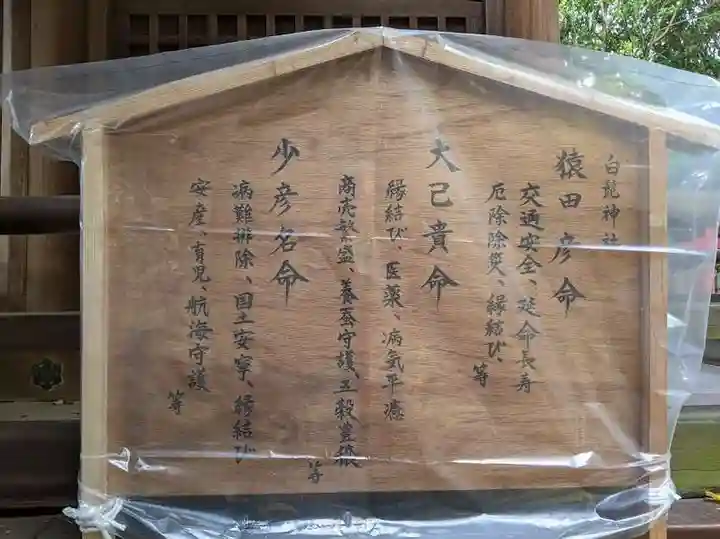 白髭神社
猿田彦命
交通安全、延命長寿
厄除除災、縁結び、等
大己貴命
縁結び、医薬、病気平癒
商売繁盛、養蚕守護、五穀豊穣
等
少彦名命
病難排除、国土安寧、縁結び
安産、育児、航海守護
等